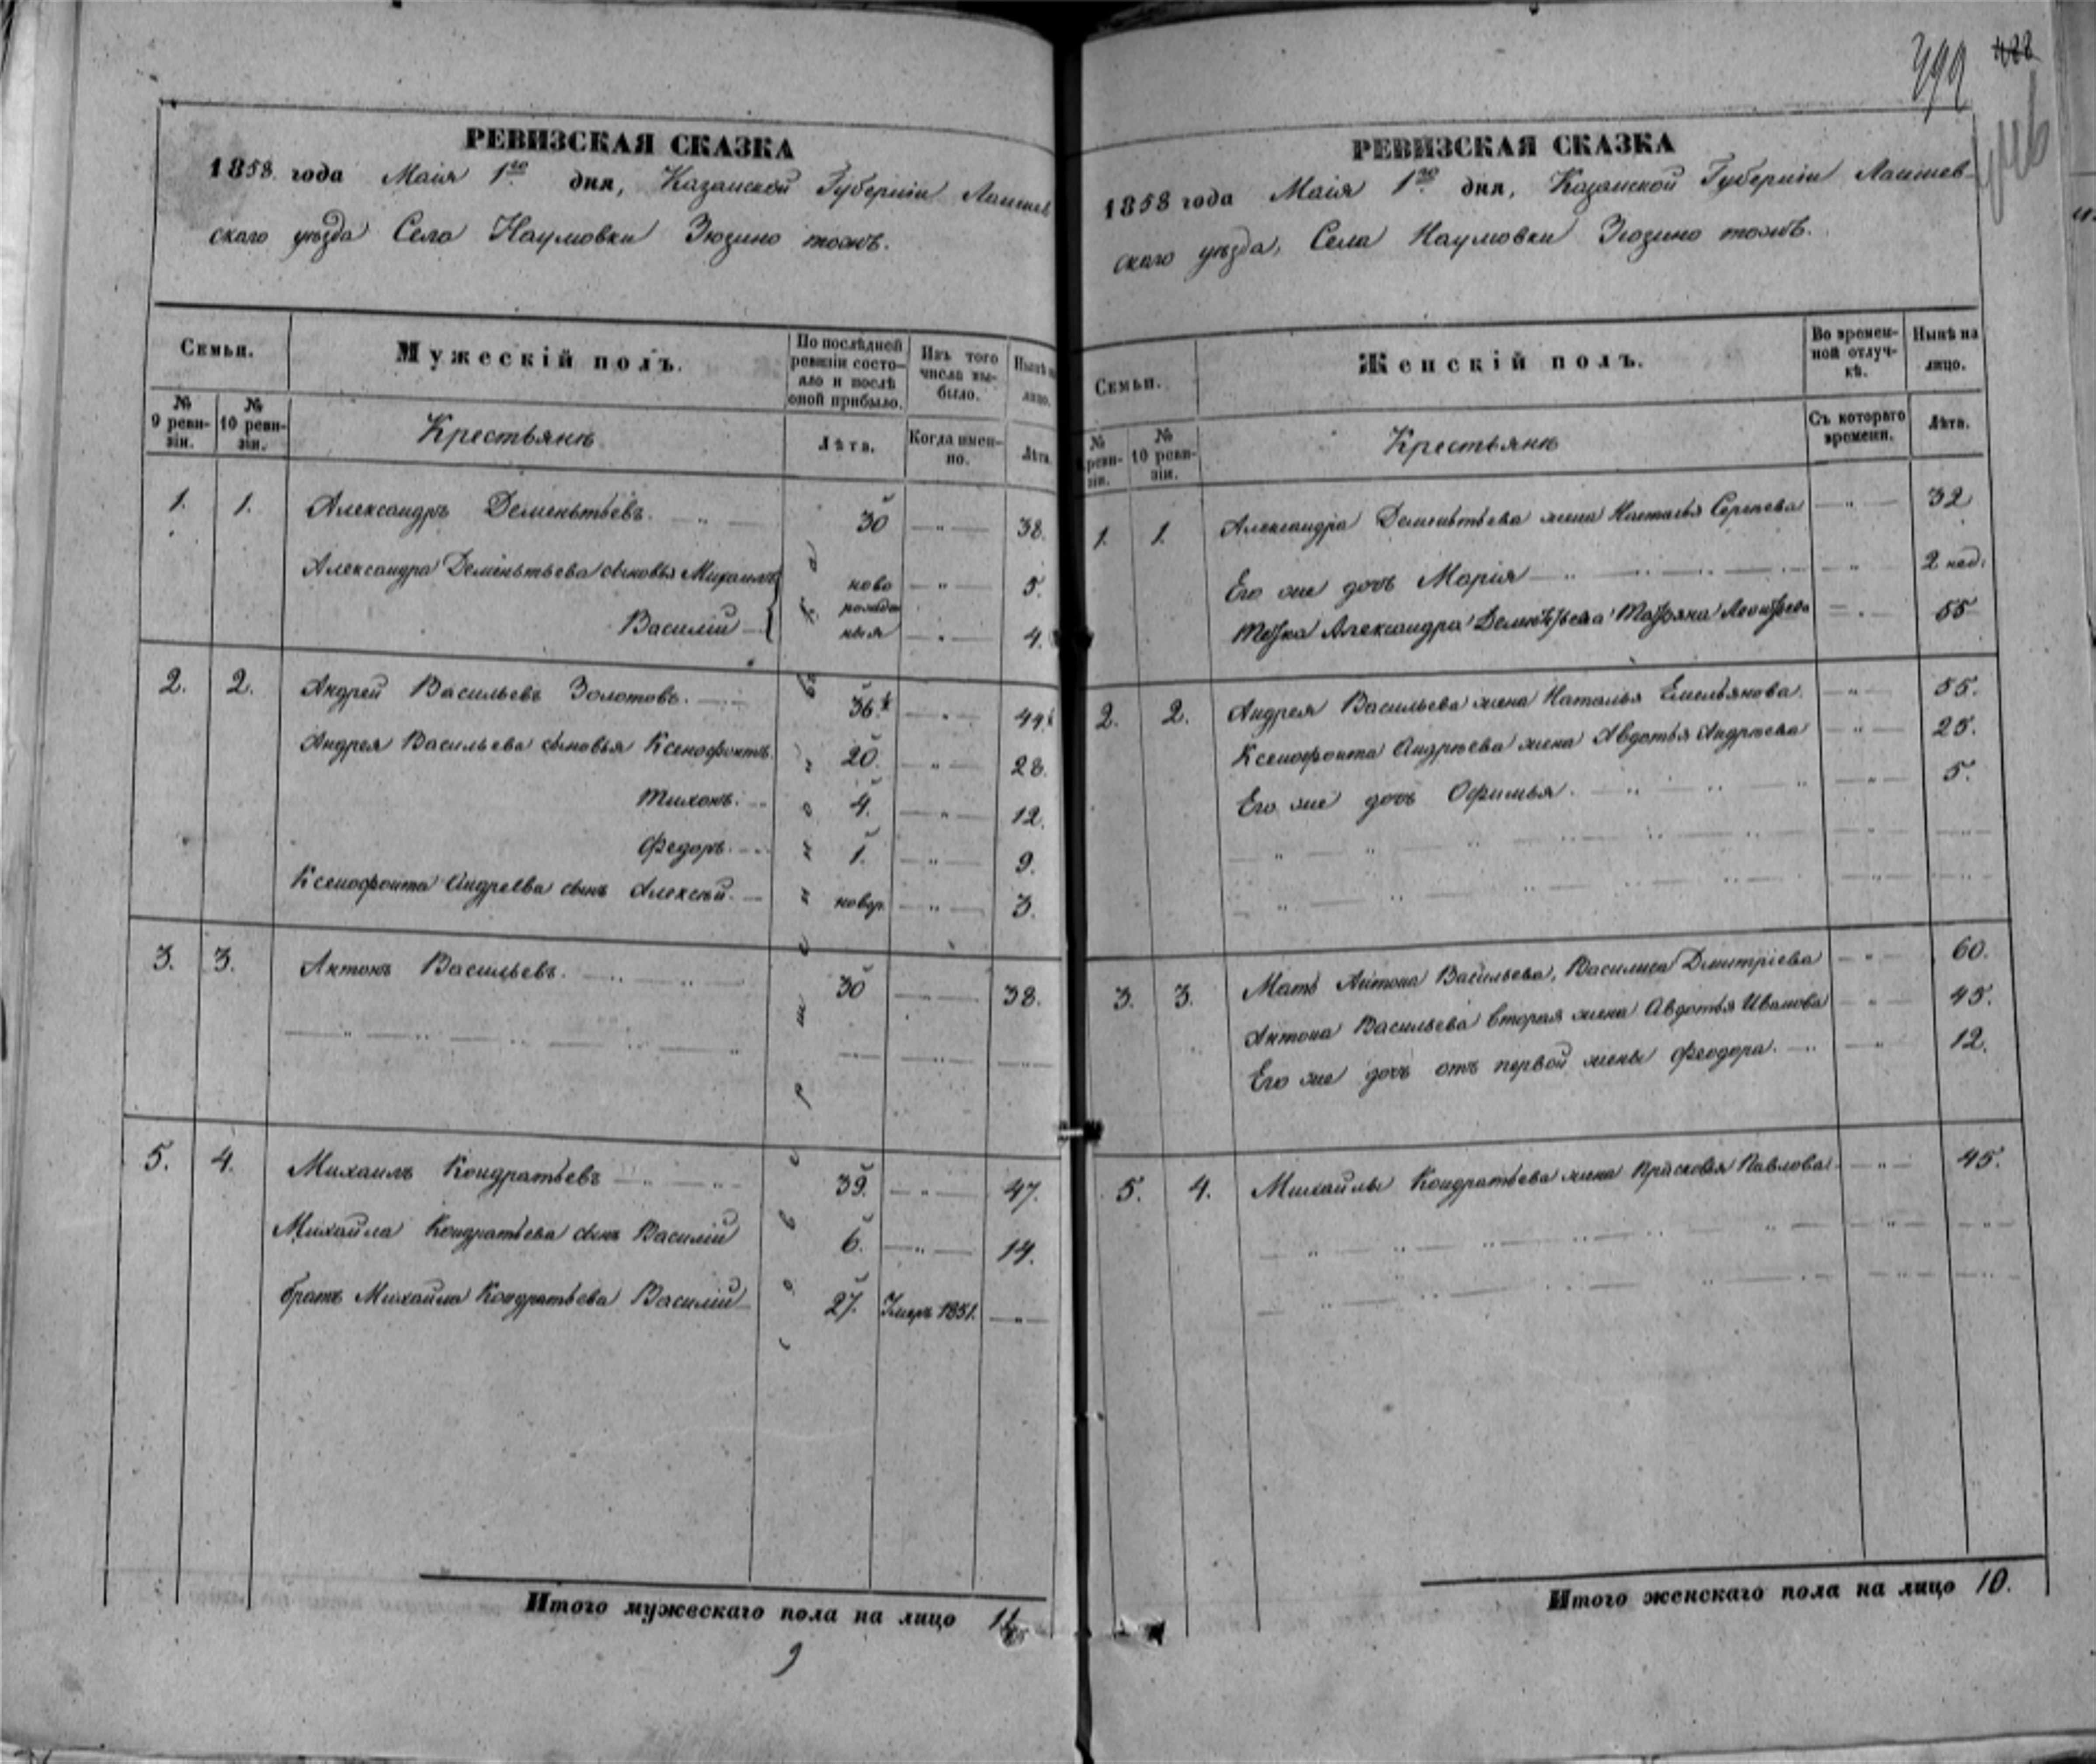 РЕВИЗСКАЯ СКАЗКА
1858 года Маія 1го дня, Казанской Губерніи Лаишев
скаго уѣзда Села Наумовки Зюзино тожъ.
Семьи.
Мужескій полъ.
По послѣдней ревизіи состояло и послѣ оной прибыло.
Изъ того числа выбыло.
Нынѣ на лицо.
№ 9 ревизіи.
№ 10 ревизіи.
Крестьяне
Лѣта.
Когда именно.
Лѣта.
1. 1. Александръ Дементьевъ. 30 38.
Александра Дементьева сыновья Михаилъ ново 5.
Василій рожденныя 4.
2. 2. Андрей Васильевъ Золотовъ. 36½ 44½
Андрея Васильева сыновья Ксенофонтъ 20. 28.
Тихонъ. 4. 12.
Федоръ. 1. 9.
Ксенофонта Андреева сынъ Алексѣй. новор. 3.
3. 3. Антонъ Васильевъ. 30 38.
5. 4. Михаилъ Кондратьевъ 39. 47.
Михайла Кондратьева сынъ Василій 6. 14.
братъ Михайла Кондратьева Василій 27. Умеръ 1851.
Итого мужескаго пола на лицо 11
9
399 488
РЕВИЗСКАЯ СКАЗКА
1858 года Маія 1го дня, Казанской Губерніи Лаишев-
скаго уѣзда, Села Наумовки Зюзино тожъ.
Семьи.
Женскій полъ.
Во временной отлучкѣ.
Нынѣ на лицо.
№ ревизіи.
№ 10 ревизіи.
Крестьяне
Съ котораго времени.
Лѣта.
1. 1. Александра Дементьева жена Наталья Сергѣева 32
Его же дочь Марія 2 нед.
Тетка Александра Дементьева Татьяна Леонтьева 55
2. 2. Андрея Васильева жена Наталья Емельянова 55.
Ксенофонта Андрѣева жена Авдотья Андрѣева 25.
Его же дочь Офимья. 5.
3. 3. Мать Антона Васильева, Василиса Дмитріева 60.
Антона Васильева вторая жена Авдотья Иванова 45.
Его же дочь отъ первой жены Феодора. 12.
5. 4. Михайлы Кондратьева жена Прасковья Павлова. 45.
Итого женскаго пола на лицо 10.